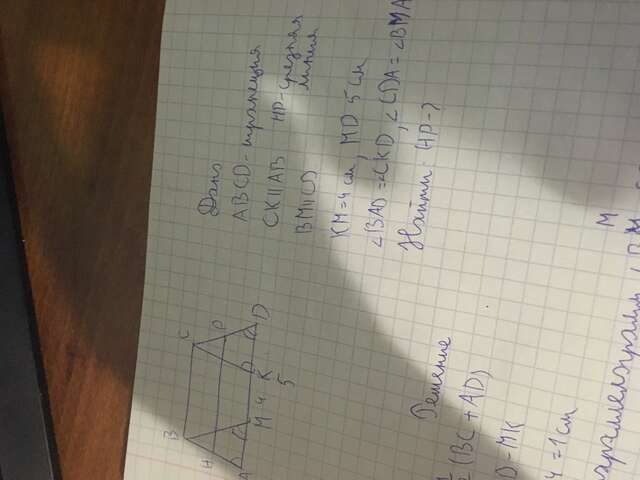 B
C
H
P
A
M
4
K
D
5
Дано
ABCD - трапеция
CK || AB HP - средняя
линия
BM || CD
KM = 4 см, MD 5 см
∠BAD = ∠CKD, ∠CDA = ∠BMA
Найти: HP - ?
Решение
(BC + AD)
D - MK
4 = 1 см
M